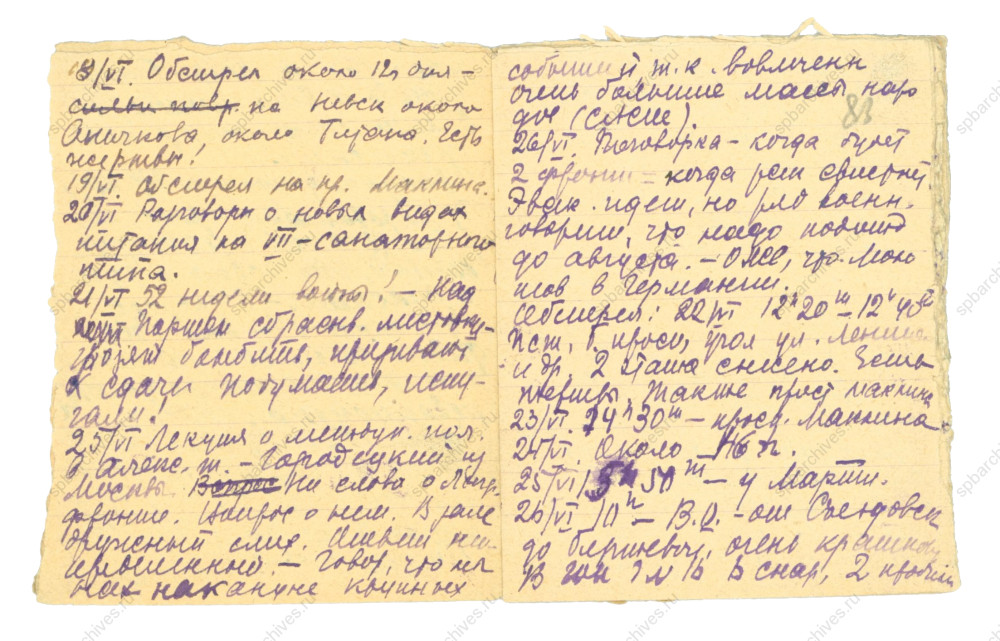 8/VI. Обстрел около 12 ч дня –
сильн повр. на Невск около
Аничкова, около Титана. Есть
жертвы!
19/VI. Обстрел на пр. Маклина.
20/VI Разговоры о новых видах
питания на VII – санаторного
типа.
21/VI 52 недели войны! – Над
Паршен сбрасыв. листовки –
грозят бомбить, призывают
к сдаче. Подумаешь, испу-
гали!
25/VI Лекция о междун. пол.
в Алекс. т. – Городецкий из
Москвы. Ни слова о Ленд
фронте. Вопрос о нем. В зале
дружный смех. Ответил не-
– Говор, что мы
накануне крупных
событий т.к. вовлечены
очень большие массы наро
дов (слыш).
83
26/VI. Поговорка – когда будет
2 фронт – когда рак свистнет.
Эвак. идет, но ряд военн.
говорит, что надо
до августа. – ОЖЕ, что Моло
тов в Германии.
Обстрел: 22/VI 12ч 20м – 12ч 45
Пст, Б. просп, угол ул. Ленина
и др, 2 этажа снесено. Есть
жертвы. Также просп Маклина
23/VI. 14ч 30м – просп. Маклина
24/VI. Около 16 ч.
25/VI 5ч 50м – у Марти.
26/VI 10ч – В.О. – от Съездовск
до биржевой, очень
В снар, 2